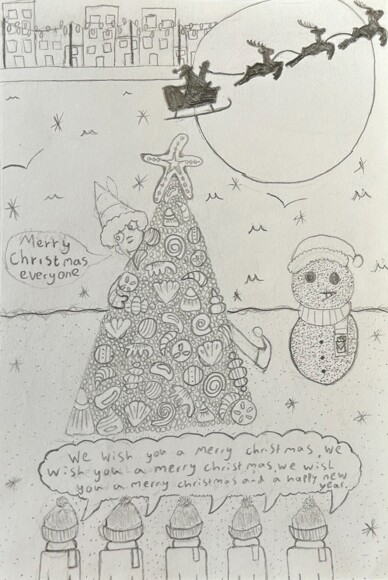 Merry
Christmas
everyone
We wish you a merry christmas, we
wish you a merry christmas, we wish
you a merry christmas and a happy new
year.